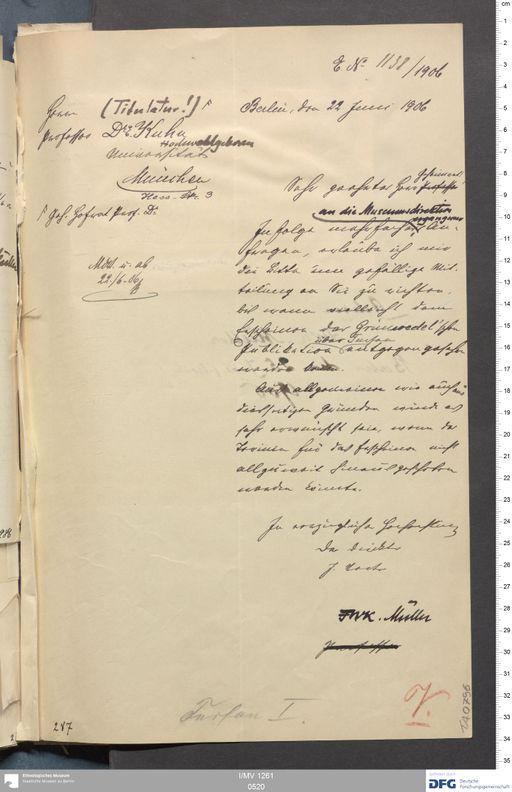 E. No 1138/1906
Herrn (Titulatur!) Γ
Professor Dr. E. Kuhn
Hochwohlgeboren
Universität
München
Hess-Str. 3
Γ Geh. Hofrat Prof. Dr.
Mdt. u. ab
22./6. 06
Berlin, den 22 Juni 1906
Sehr geehrter Herr
an die Museumsdirektion
ergangener
Zufolge mehrfacher An-
fragen, erlaube ich mir
die Bitte um gefällige Mit-
teilung an Sie zu richten,
bis wann vielleicht dem
Erscheinen der Grünwedel'schen
über Turfan
Publikation entgegen gesehen
werden kann.
Aus allgemeinen wie auch aus
diesseitigen Gründen würde es
sehr erwünscht sein, wenn der
Termin für das Erscheinen nicht
allzuweit hinausgeschoben
werden könnte.
In vorzüglicher Hochachtung
Der Direktor
FWK. Müller
Turfan I.
287
I/MV 1261
0520
Ethnologisches Museum
Staatliche Museen zu Berlin
gefördert durch
DFG Deutsche
Forschungsgemeinschaft